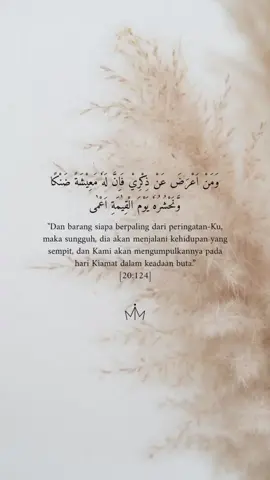 وَمَنْ اَعْرَضَ عَنْ ذِكْرِيْ فَاِنَّ لَهٗ مَعِيْشَةً ضَنْكًا
وَّنَحْشُرُهٗ يَوْمَ الْقِيٰمَةِ اَعْمٰى
"Dan barang siapa berpaling dari peringatan-Ku,
maka sungguh, dia akan menjalani kehidupan yang
sempit, dan Kami akan mengumpulkannya pada
hari Kiamat dalam keadaan buta."
[20:124]